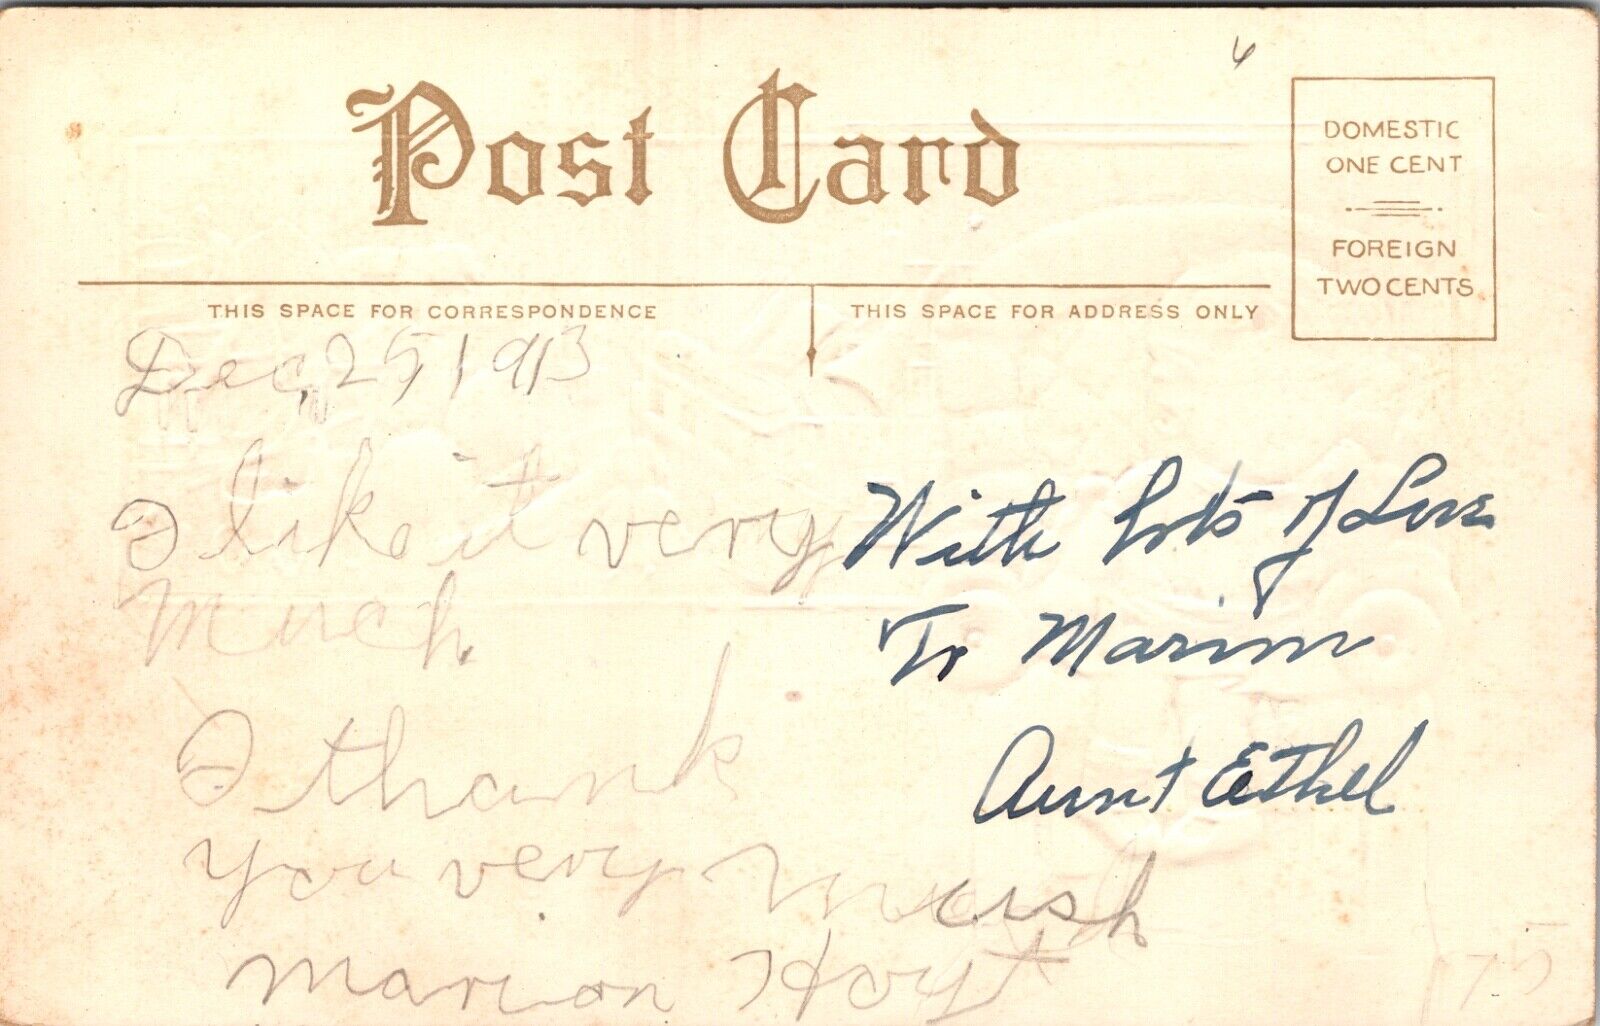 6
Post Card
DOMESTIC
ONE CENT
FOREIGN
TWO CENTS
THIS SPACE FOR CORRESPONDENCE
THIS SPACE FOR ADDRESS ONLY
Dec, 25, 1913
I like it very
Much.
I thank
you very
Marion Hoyt
With lots of Love
To Marion
Aunt Ethel